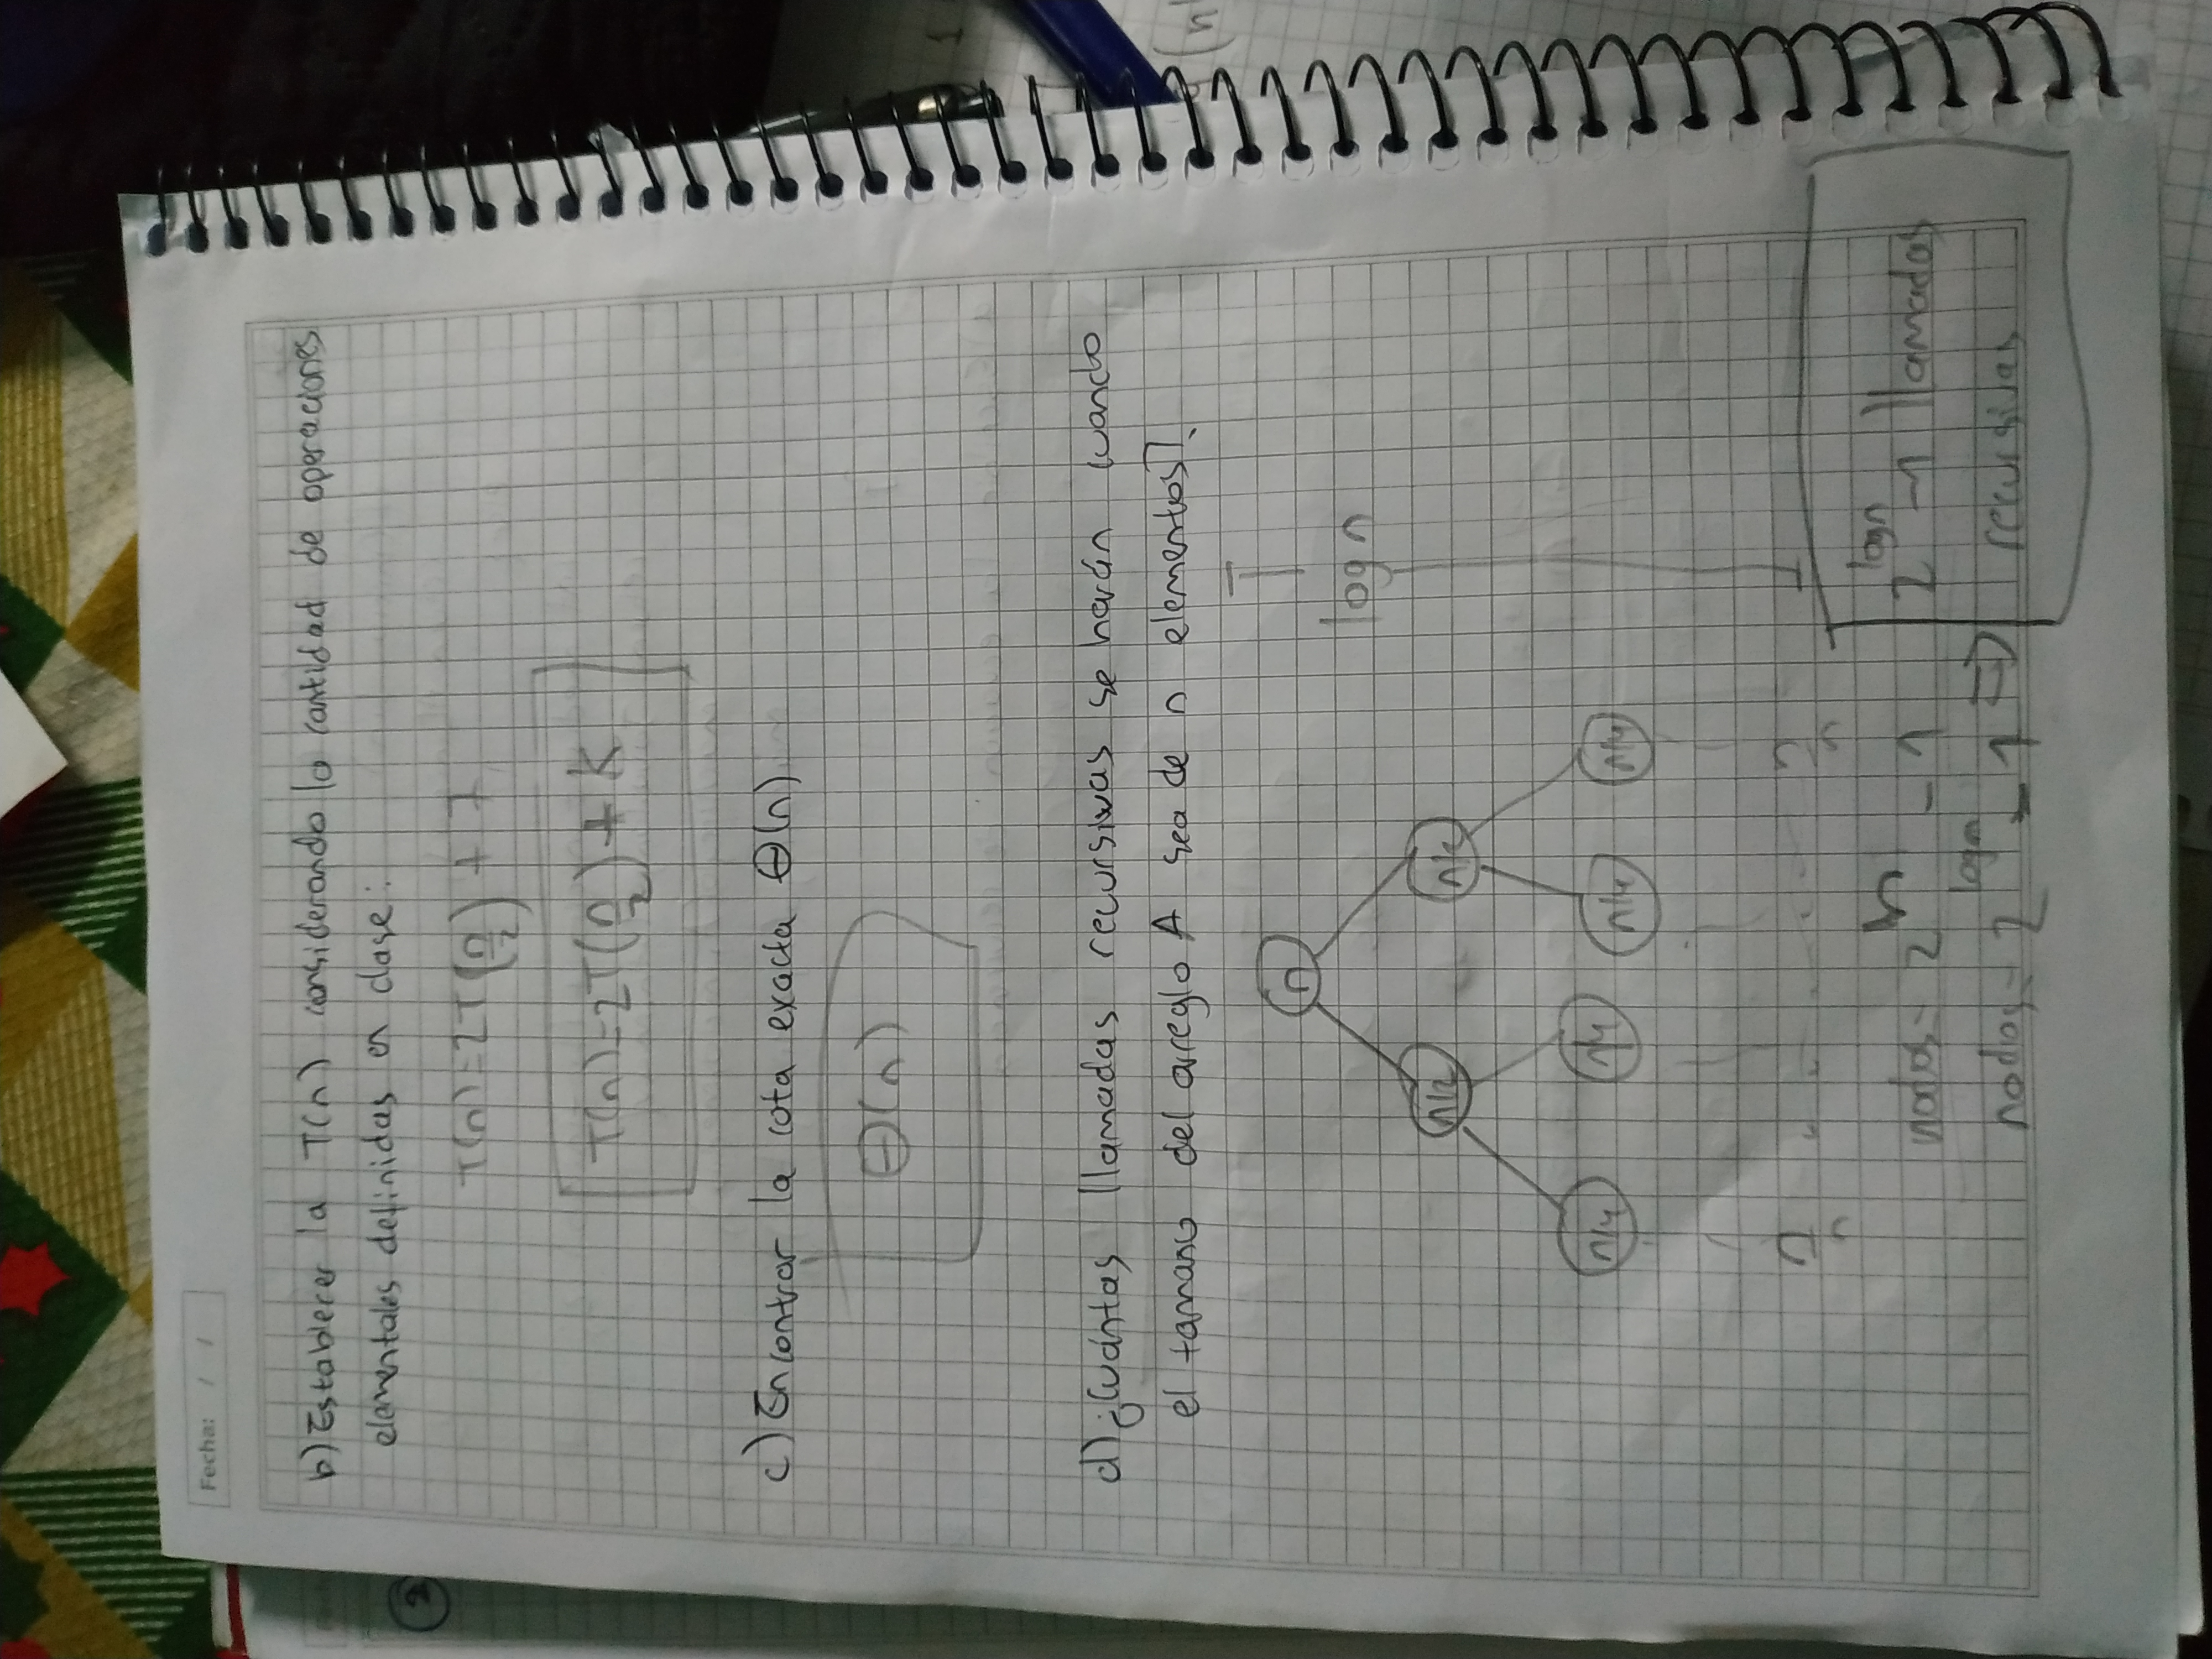 Fecha: / /
b) Establecer la T(n) considerando la cantidad de operaciones
elementales definidas en clase:
T(n)=2T(n/2) + 7
T(n)=2T(n/2) + K
c) Encontrar la cota exacta Θ(n)
Θ(n)
d) ¿Cuántas llamadas recursivas se harán cuando
el tamano del arreglo A sea de n elementos?
n
log n
n/2 n/2
n/4 n/4 n/4 n/4
n/n . . . . . n/n
nodos = 2^h - 1
nodos = 2^logn - 1 ⇒
2^logn - 1 llamadas
recursivas
2
(n
1